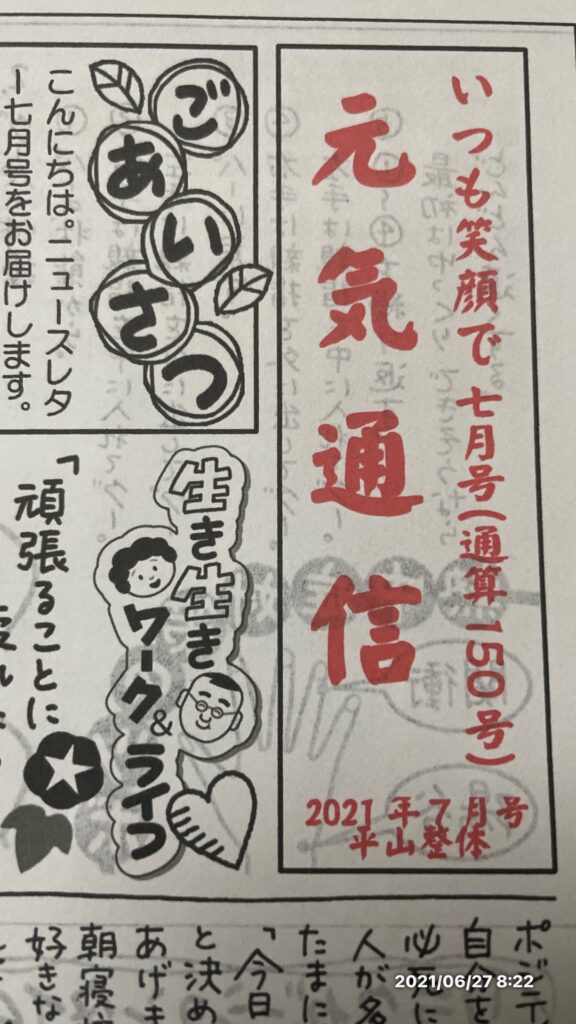 いつも笑顔で 七月号(通算150号)
元気通信
2021年7月号
平山整体
ごあいさつ
こんにちは。ニュースレタ
ー七月号をお届けします。
生き生き
ワーク&ライフ
「頑張ることに
ポジテ
自分を
必死に
人が名
たまに
「今日
と決め
あげき
朝寝坊
好きな
2021/06/27 8:22